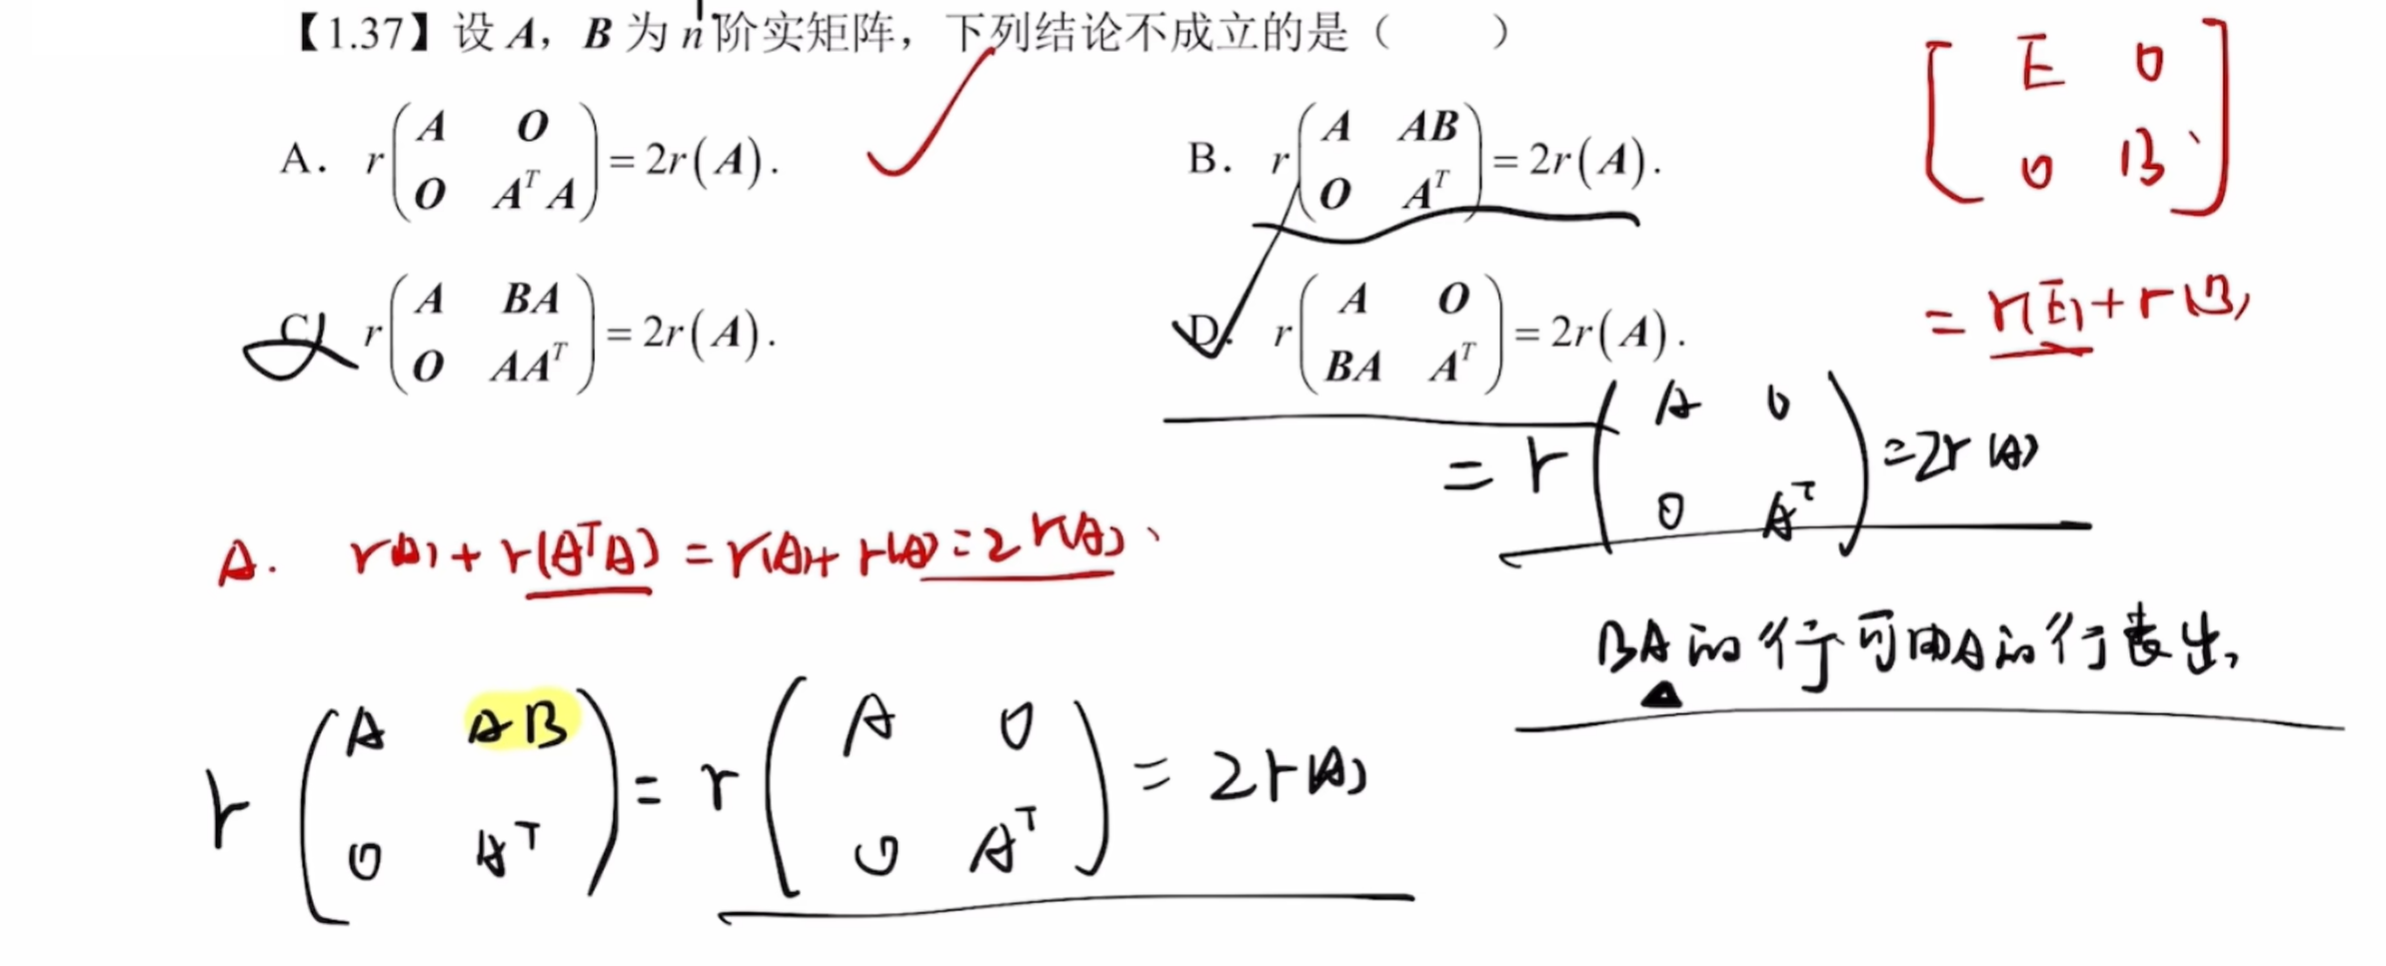 【1.37】设 A，B 为 n 阶实矩阵，下列结论不成立的是（　　）
A. r(A O; O AᵀA) = 2r(A).
B. r(A AB; O Aᵀ) = 2r(A).
C. r(A BA; O AAᵀ) = 2r(A).
D. r(A O; BA Aᵀ) = 2r(A).
[E 0; 0 B]
= r(E) + r(B)
= r(A 0; 0 Aᵀ) = 2r(A)
A. r(A) + r(AᵀA) = r(A) + r(A) = 2r(A)、
BA的行可由A的行表出,
r(A AB; 0 Aᵀ) = r(A 0; 0 Aᵀ) = 2r(A)